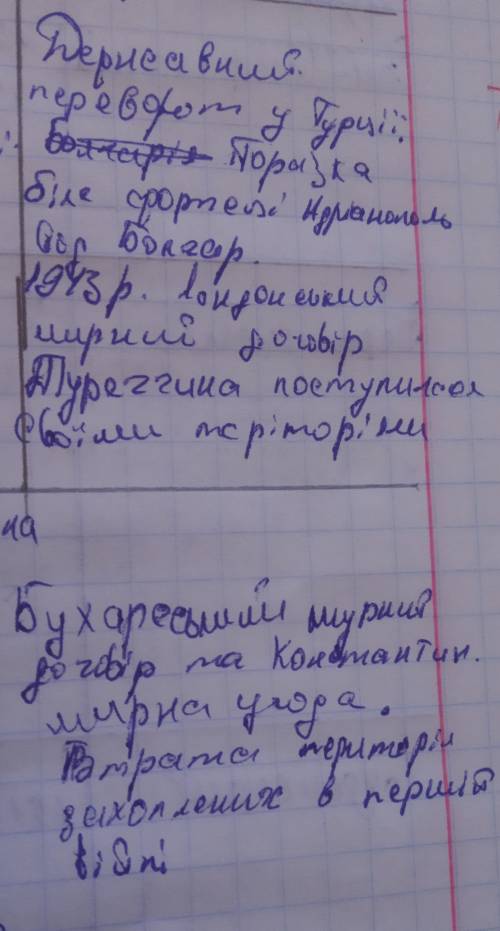 Державний
переворот у Турції.
Болгарія Поразка
біля фортеці Адріанополь
від Болгар.
1913 р. Лондонський
мирний договір
Туреччина поступилася
своїми теріторіями
на
Бухареський мурний
договір та Константин.
мирна угода.
Втрата територій
захоплених в першій
війні